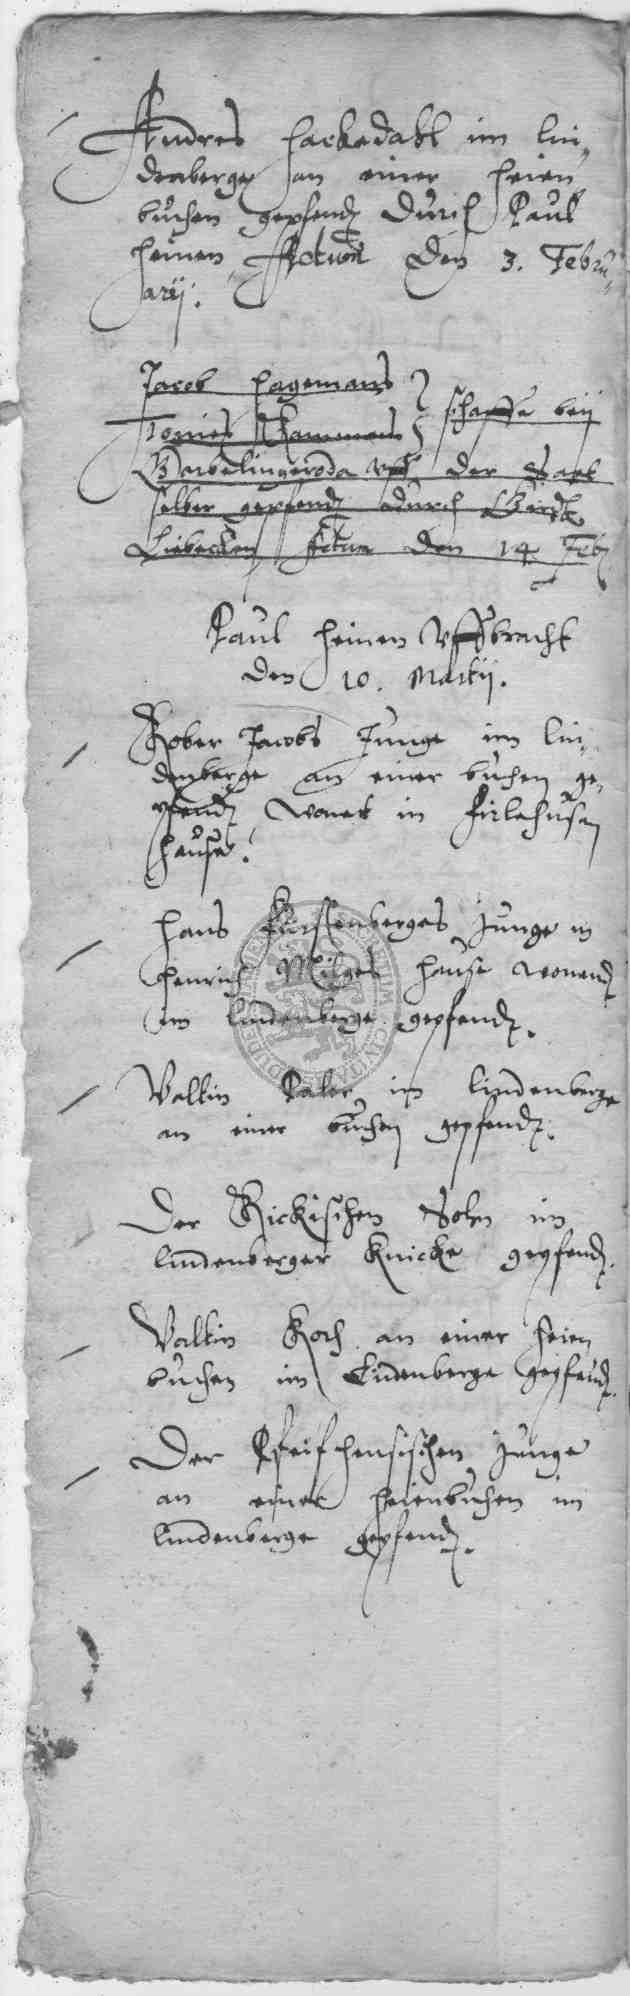 Andres Hackedahl im lin„
denberge an einer heien
buchen gepfend durch Paul
heinen Actum den 3. Febru„
arij.
Jacob Hagemans
Tonies Hammans } schaffe beij
Barbelingeroda uff der Saet
selber gepfend durch Gerdt
Liebecken Actum den 14 Feb
Paul heinen uffbracht
den 10. Martij.
Kober Jacobs Junge im lin„
denberge an einer buchen ge„
pfend, wonet in
hause.
Hans Furstenberges Junge in
Henrich Milges hause wonend
im lindenberge gepfend.
Valtin Paler im lindenberge
an einer buchen gepfend.
Der Rickischen Sohn im
lindenberger Knicke gepfend.
Valtin Koch an einer heien
buchen im Lindenberge gepfend.
Der Pfeifhensischen Junge
an einer heienbuchen im
lindenberge gepfend.